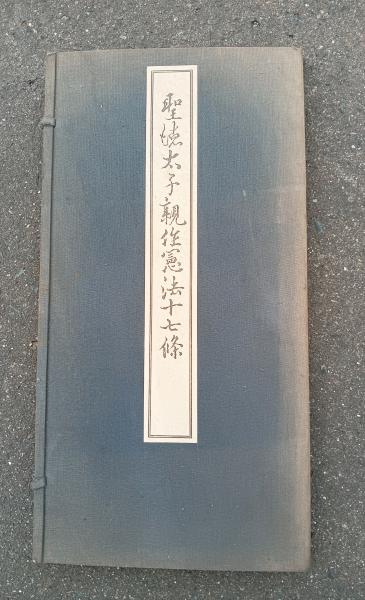 聖徳太子親作憲法十七條